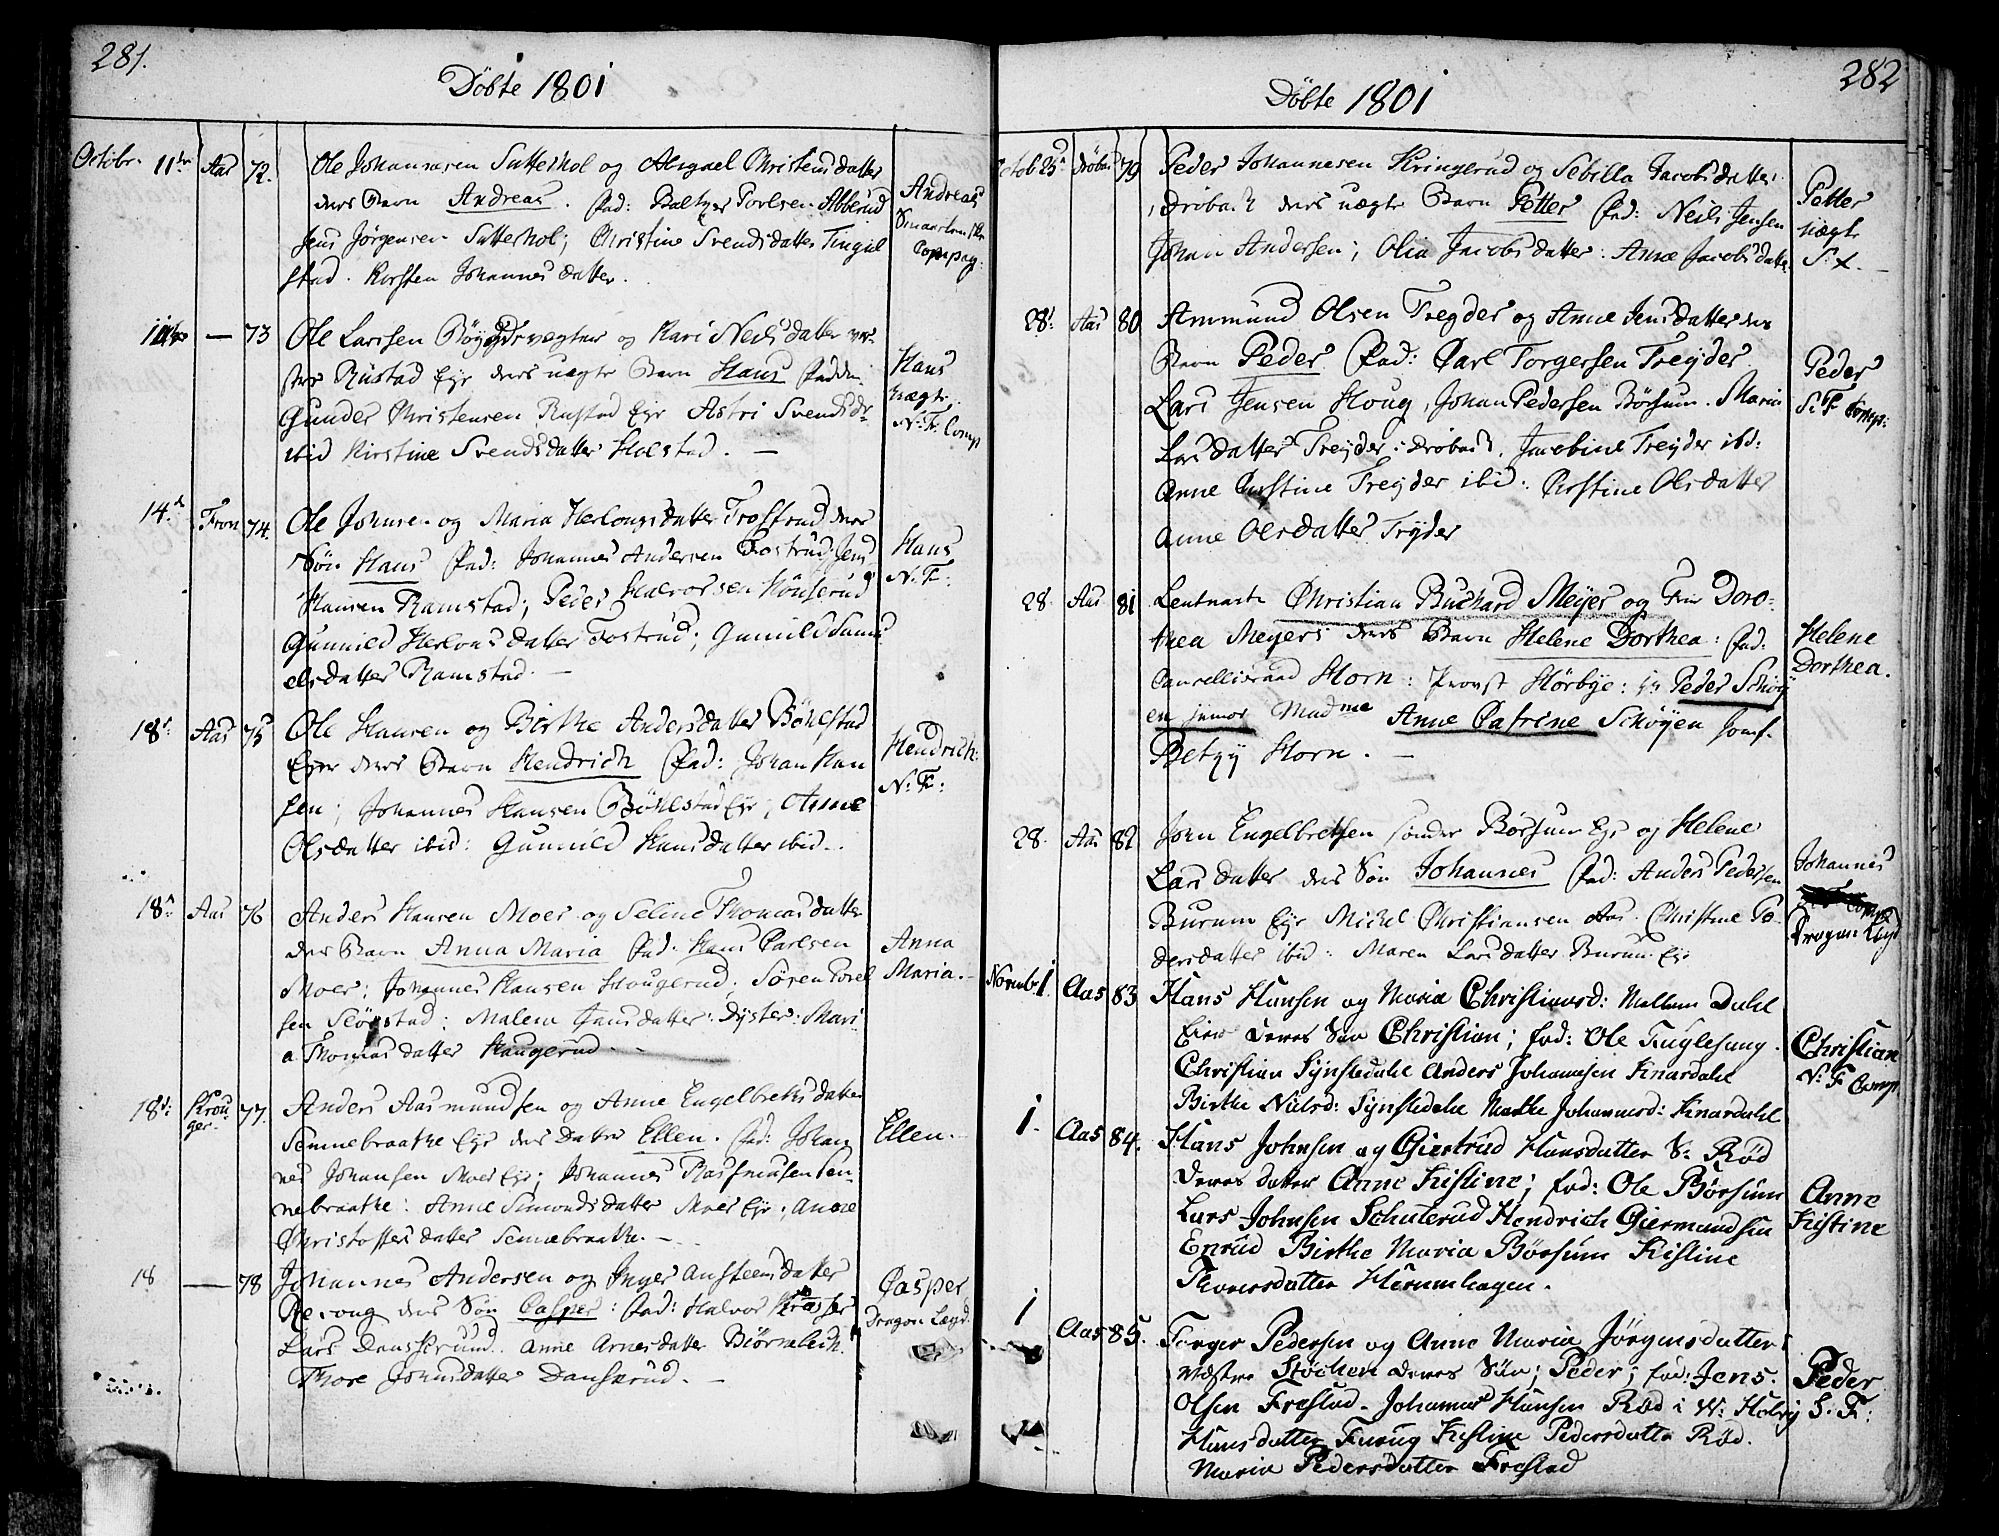 281.
Döbte 1801
Octobr. 11te Aas 72. Ole Johannesen Sætterhol og Abigael Christensdatter
ders Barn Andreas. Fad: Baltzer Povlsen Abberud
Jens Jörgensen Sætterhol; Christine Svendsdatter Tingul
stad. Kirsten Johannesdatter.
Andreas
Compag:
11te — 73 Ole Larsen Böygdsvægter og Kari Neilsdatter ve-
stre Rustad Eje ders uægte Barn Hans Fadde:
Gunder Christensen Rustad Eje Astri Svendsdr
ibid Kirstine Svendsdatter Holstad. —
Hans
uægte
N: F. Comp
14.d Fron 74. Ole Johnsen og Maria Herlougsdatter Trostrud ders
Sön Hans Fad: Johannes Andersen Fostrud; Jens
Hansen Ramstad; Peder Halvorsen Hönserud
Gunnild Herlovsdatter Fostrud; Gunild Samu
elsdatter Ramstad. —
Hans
N. F:
18d: Aas 75 Ole Hansen og Birthe Andersdatter Böhlstad
Ejer ders Barn Hendrich Fad: Johan Han
sen; Johannes Hansen Böhlstad Eje; Anne
Olsdatter ibid: Gunnild Hansdatter ibid..
Hendrich:
N: F:
18d: Aas 76 Anders Hansen Moer og Seline Thomasdatter
ders Barn Anna Maria Fad. Hans Carlsen
Moer; Johannes Hansen Hougerud; Sören Povel
sen Slörstad; Malene Jansdatter: Dyster: Mari
a Thomasdatter Haugerud. —
Anna
Maria. —
18d: Krou-
ger. 77. Anders Aasmundsen og Anne Engelbretsdatter
Sennebraathe Eje ders Datter Ellen. Fad: Johan
nes Johansen Moer Eje; Johannes Rasmusen Sen-
nebraathe: Anne Simonsdatter Moer Eje; Anne
Christoffersdatter Sennebraathe. —
Ellen. —
18 — 78 Johannes Andersen og Inger Ansteensdatter
Revoug ders Sön Casper: Fad: Halvor
Lars Danskerund. Anne Arnesdatter Biörnebeck.
Thore Johnsdatter Danskrud. —
Casper
Dragon Lægd.
282
Döbte 1801
Octob 25d Dröbac 79 Peder Johannesen Kringerud og Sebilla Jacobsdatter
i Dröbach ders uægte Barn Petter Fad: Neils Jensen
Johan Andersen; Olia Jacobsdatter: Anne Jacobsdatter
Petter
uægte
S. F. —
28d: Aas 80 Ammund Olsen Treyder og Anne Jensdatter ders
Barn Peder Fad: Carl Torgersen Treyder
Lars Jensen Houg, Johan Pedersen Börsum. Maria
Larsdatter Treyder i Dröbach. Jacobine Treyder ibd:
Anne Cirstine Treyder ibid: Cirstine Olsdatter
Anne Olsdatter Tryder
Peder
S. F Comp:
28. Aas 81 Leutnante Christian Buchard Meyer og Frue Doro-
thea Meyers ders Barn Helene Dorthea: Fad:
Cancelliraad Horn: Provst Hörbye: Hr Peder Schöy
en junior Madme Anne Catrine Schöyen Jomf.
Betzy Horn. —
Helene
Dorthea.
28. Aas 82 John Engelbretsen sönder Börsum Eje og Helene
Larsdatter ders Sön Johannes Fad: Anders Pedersen
Burum Eje Michel Christiansen Aas. Christine Pe-
dersdatter ibid: Maren Larsdatter Burum Eje
Johannes
Dragon Lægd
Novemb 1. Aas 83 Hans Hansen og Maria Christiansd: Mellem Dahl
Eier Deres Sön Christian; fad: Ole Fuglesang.
Christian Synstedahl Anders Johannesen Kinardahl
Birthe Nielsd: Synstedahl Marthe Johannesd: Kinardahl
Christian
N: F Comp
1. Aas 84. Hans Johnsen og Giertrud Hansdatter S: Röd
Deres datter Anne Kistine; fad: Ole Börsum
Lars Johnsen Schuterud Hendrich Giermundsen
Enrud Birthe Maria Börsum Kistine
Thoresdatter Herumhagen.
Anne
Kistine
1 Aas 85. Torger Pedersen og Anne Maria Jörgensdatter
Wæstre Stöchen Deres Sön; Peder; fad: Jens.
Olsen Frestad. Johannes Hansen Röd i W: Helvig
Hansdatter Furug Kistine Pedersdatter Röd.
Maria Pedersdatter Frestad
Peder
S. F: